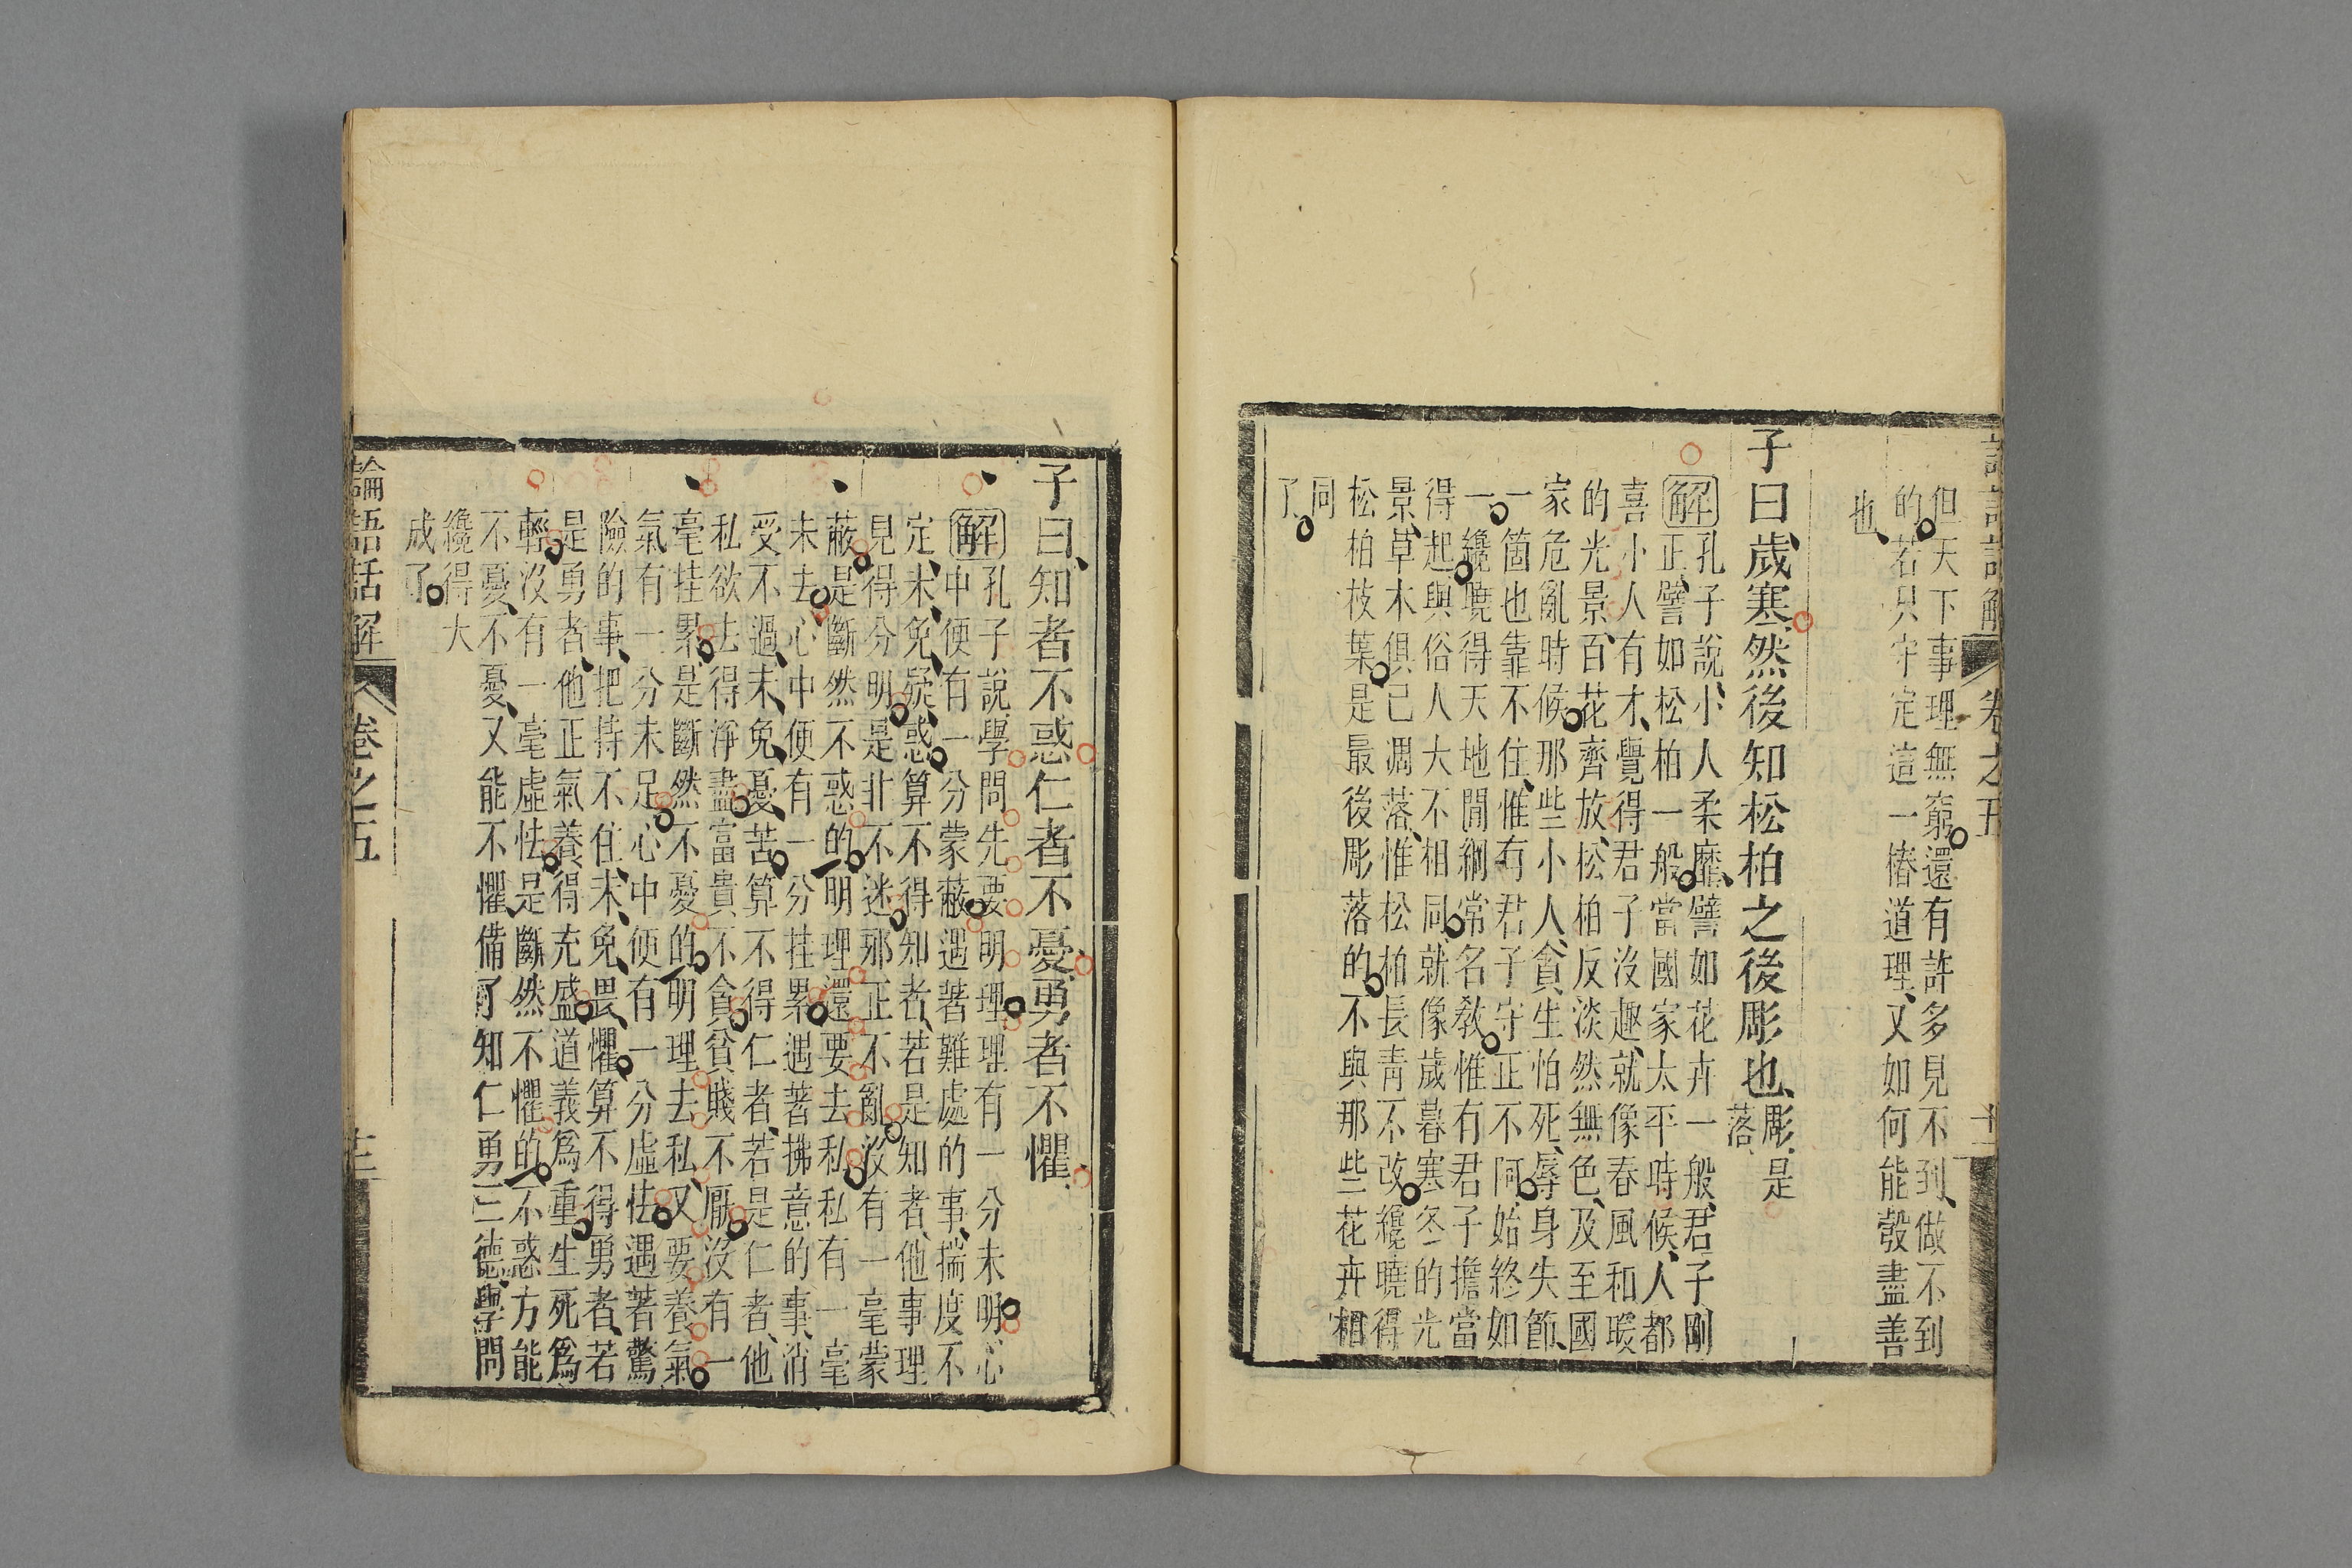 但天下事理無窮還有許多見不到、做不到
的若只守定這一樁道理、又如何能彀盡善
也、
子曰、歲寒、然後知松柏之後彫也、彫、是
落、
解孔子說、小人柔靡、譬如花卉一般、君子剛
正、譬如松柏一般當國家太平時候、人都
喜小人有才、覺得君子沒趣、就像春風和暖
的光景、百花齊放、松柏反淡然無色、及至國
家危亂時候那些小人、貪生怕死、辱身失節、
一箇也靠不住、惟有君子守正不阿、始終如
一纔曉得天地間綱常名教惟有君子擔當
得起與俗人大不相同就像歲暮寒冬的光
景、草木俱已凋落、惟松柏長靑不改纔曉得
松柏枝葉是最後彫落的不與那些花卉相
同
了
子曰、知者不惑仁者不憂、勇者不懼、
解孔子說學問先要明理理有一分未明心
中便有一分蒙蔽遇著難處的事、揣度不
定、未、免、疑、惑算不得知者、若是知者、他事理
見得分明是非不迷那正不亂沒有一毫蒙
蔽是斷然不惑的明理還要去私私有一毫
未去心中便有一分挂累遇著拂意的事、消
受不過、未、免、憂、苦算不得仁者、若是仁者、他
私欲去得淨盡富貴不貪貧賤不厭沒有一
毫挂累是斷然不憂的明理去私、又要養氣
氣有一分未足心中便有一分虛怯遇著驚
險的事、把持不住、未、免、畏、懼算不得勇者、若
是勇者、他正氣養得充盛道義爲重生死爲
輕沒有一毫虛怯是斷然不懼的不惑方能
不憂、不憂、又能不懼、備了知仁勇三德、學問
纔得大
成了
論語話解
卷之五